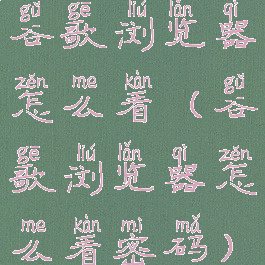 gǔ gē liú lǎn qì
谷歌浏览器
zěn me kàn gǔ
怎么看（谷
gē liú lǎn qì zěn
歌浏览器怎
me kàn mì mǎ
么看密码）